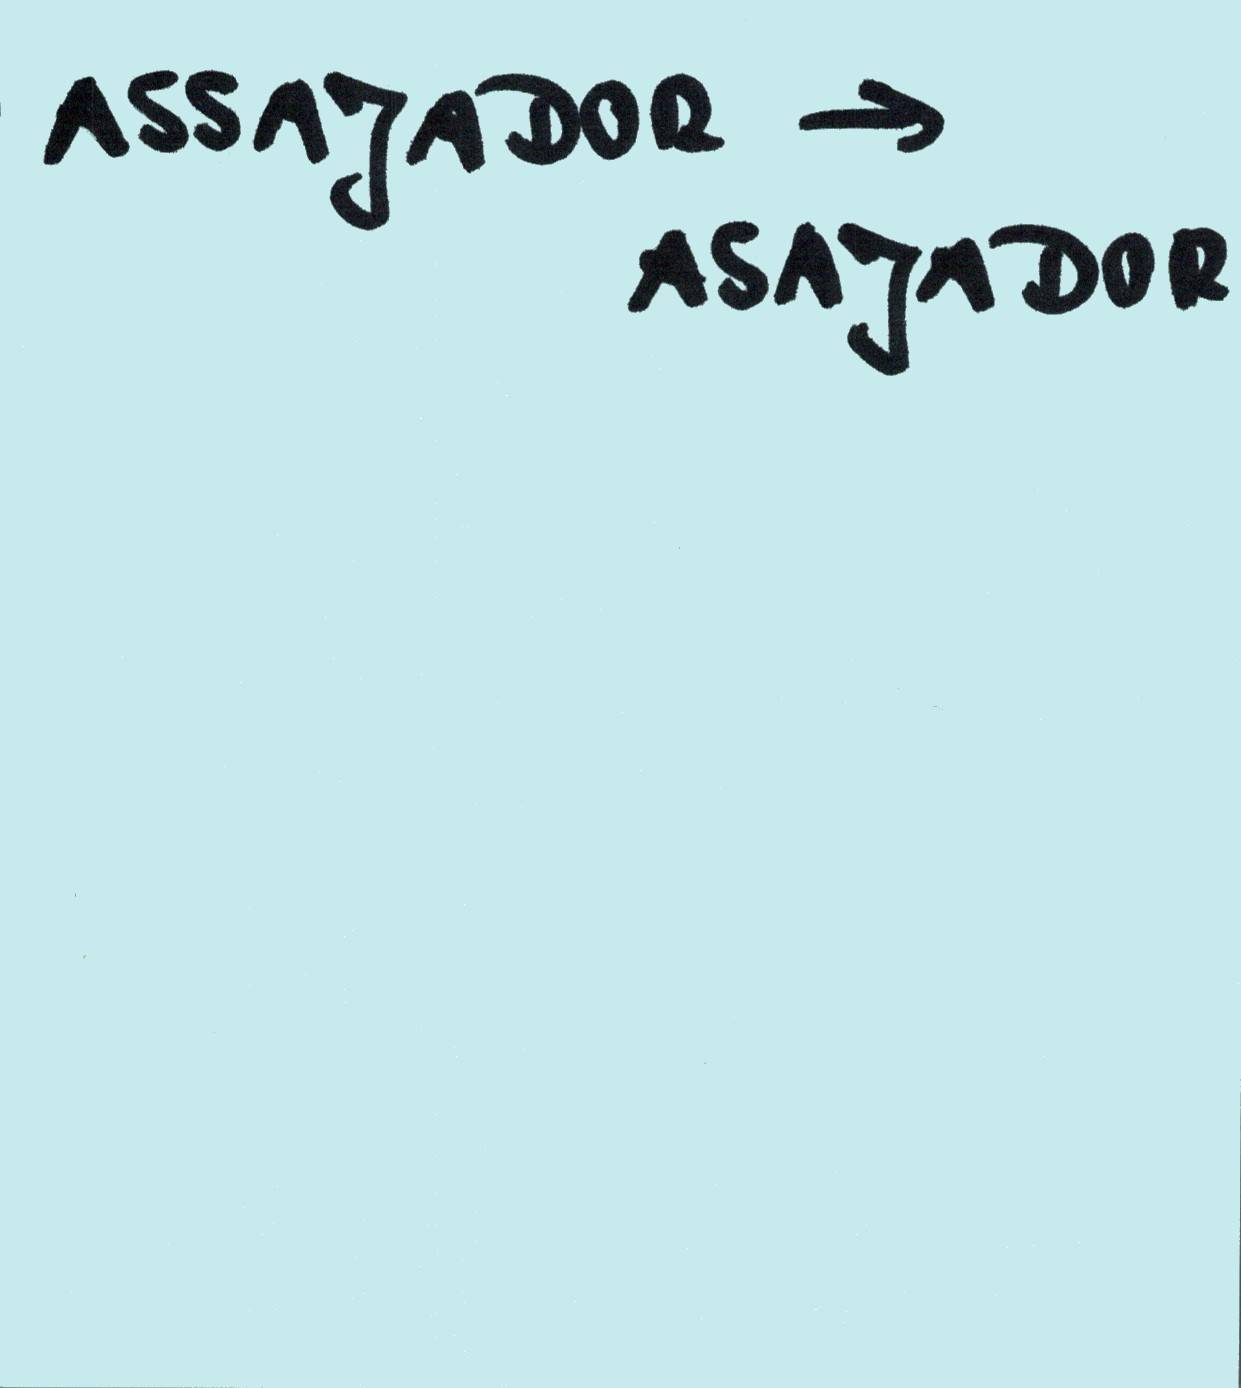 ASSAJADOR →
ASAJADOR